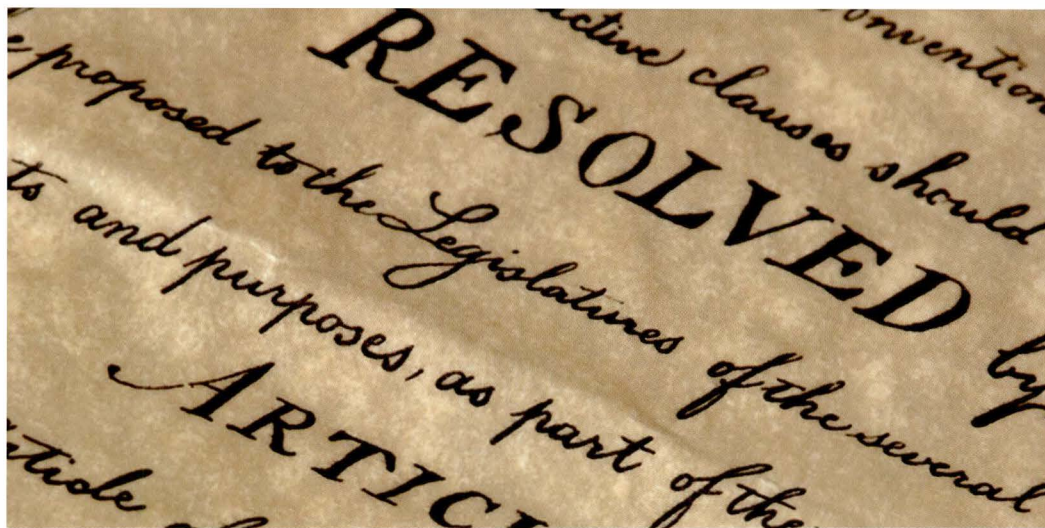 onvention
ctive clauses should
RESOLVED by
e proposed to the Legislatures of the several
ts and purposes, as part of the
ARTIC
rticle